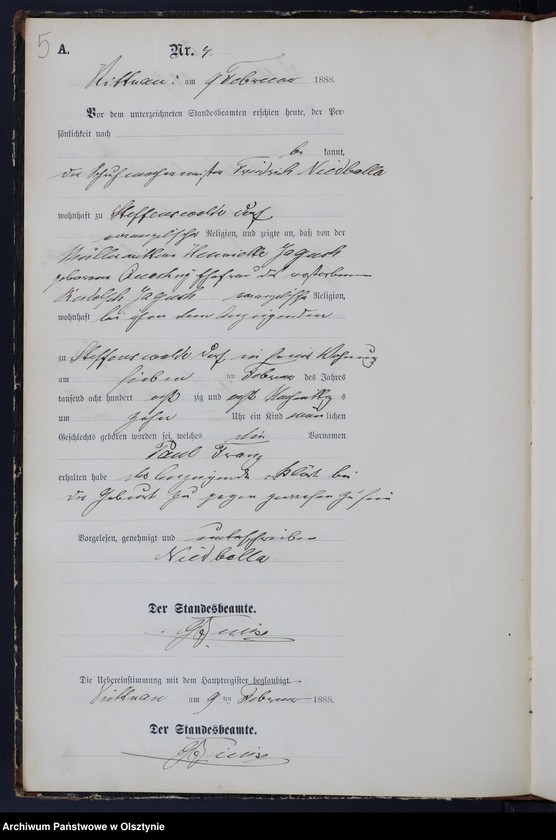 5
A.
Nr. 4.
am 9 Februar 1888.
Vor dem unterzeichneten Standesbeamten erschien heute, der Per-
sönlichkeit nach
be kannt,
der Schuhmachermeister Friedrich Niedballa
wohnhaft zu Steffenswalde Dorf
evangelischer Religion, und zeigte an, daß von der
Henriette Jagusch
geborenen Ehefrau des verstorbenen
Rudolph Jagusch evangelischer Religion,
wohnhaft bei ihm dem Anzeigenden
zu Steffenswalde Dorf in seiner Wohnung
am sieben ten Februar des Jahres
tausend acht hundert acht zig und acht Nachmittag s
um zehn Uhr ein Kind männ lichen
Geschlechts geboren worden sei, welches die Vornamen
Paul Franz
erhalten habe
der Geburt zu gegen gewesen zu sein
Vorgelesen, genehmigt und unterschrieben
Niedballa
Der Standesbeamte.
Die Uebereinstimmung mit dem Hauptregister beglaubigt
am 9 ten Februar 1888.
Der Standesbeamte.
Archiwum Państwowe w Olsztynie